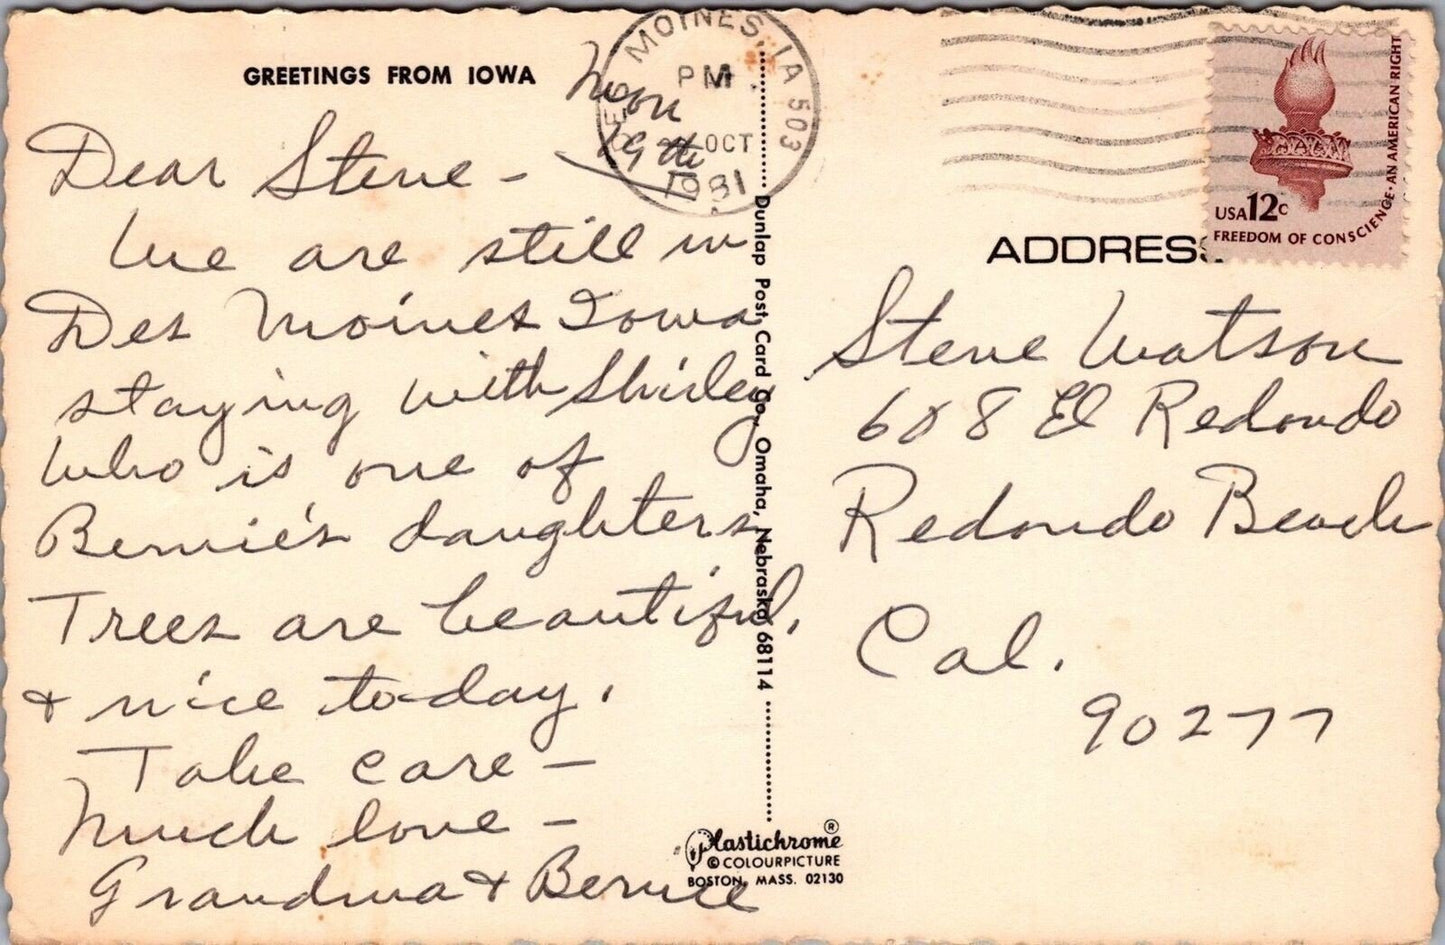 GREETINGS FROM IOWA
Mon
19th
Dear Steve -
We are still in
Des Moines Iowa
staying with Shirley
who is one of
Bernie's daughters
Trees are beautiful,
& nice to-day.
Take care -
Much love -
Grandma & Bernice
DES MOINES, IA 503
PM
OCT
1981
Dunlap Post Card Co., Omaha, Nebraska 68114
Plastichrome ®
© COLOURPICTURE
BOSTON, MASS. 02130
USA 12c
FREEDOM OF CONSCIENCE • AN AMERICAN RIGHT
ADDRESS
Steve Watson
608 El Redondo
Redondo Beach
Cal.
90277